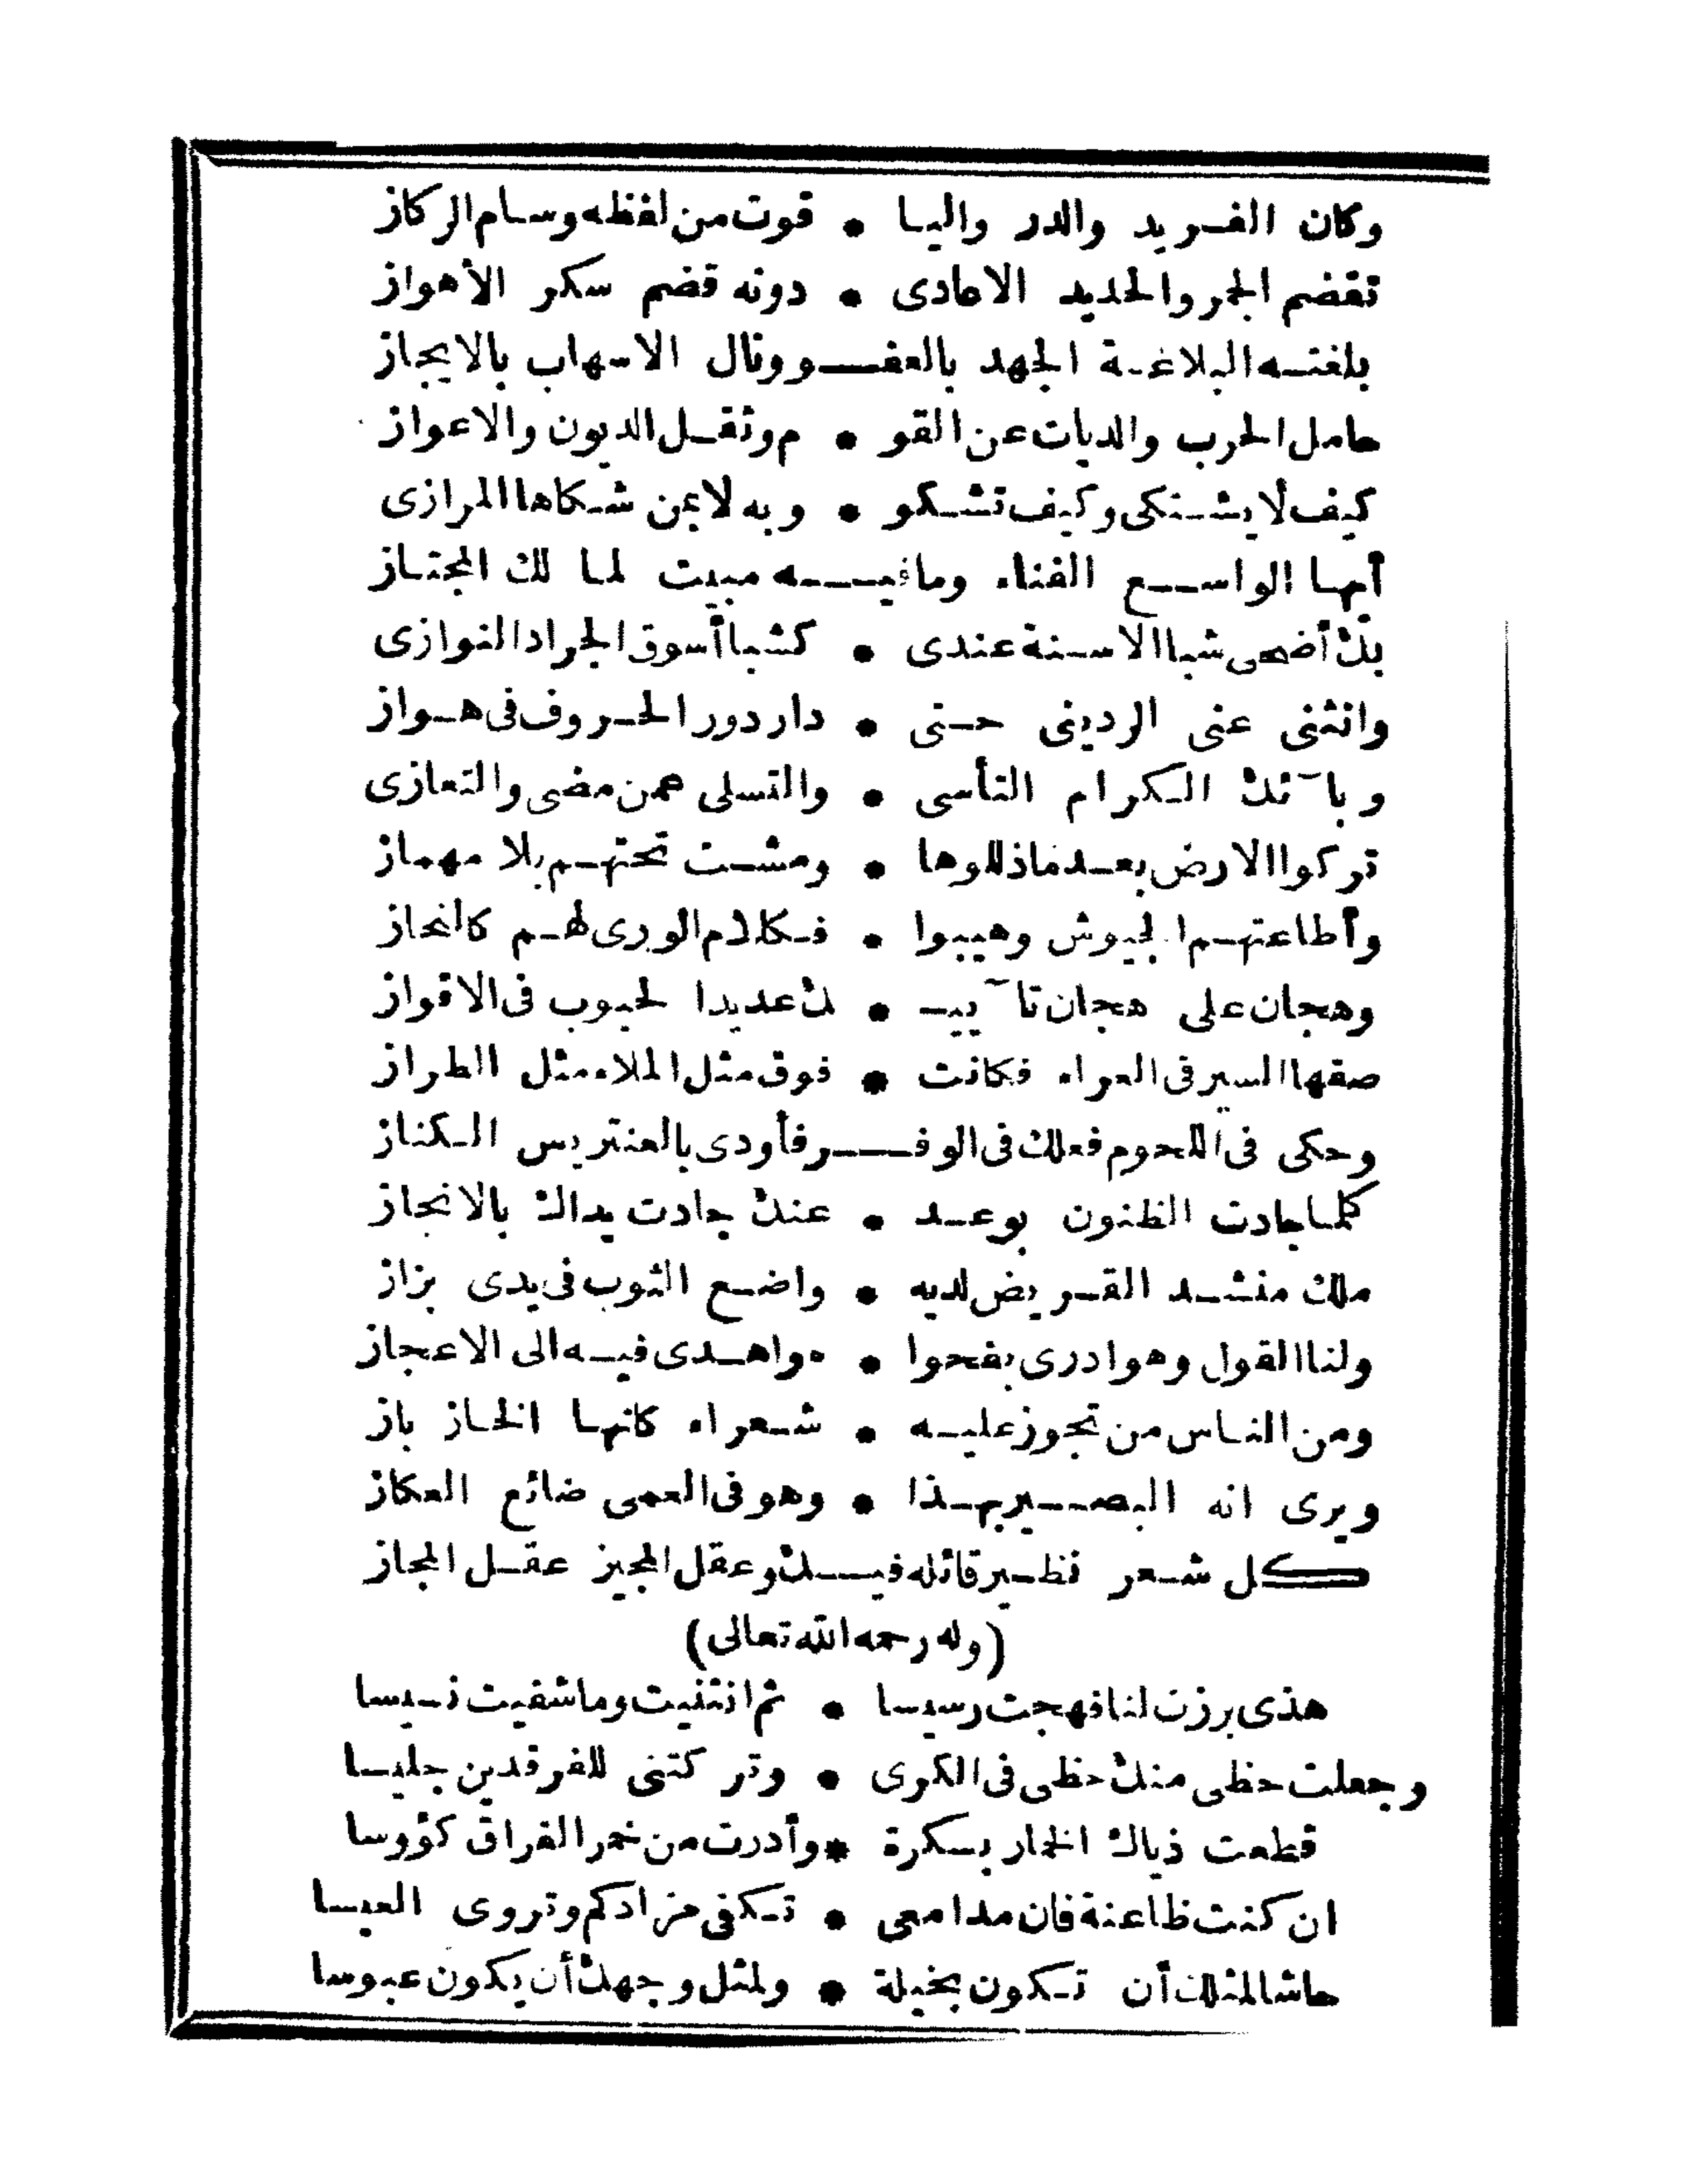 وكان الفريد والدر واليا * قوت من لفظه وسام الركاز
تقضم الجمر والحديد الاعادى * دونه قضم سكر الأهواز
بلغته البلاغة الجهد بالعفـو ونال الاسهاب بالايجاز
حامل الحرب والديات عن القو * م وثقل الديون والاعواز
كيف لا يشتكى وكيف تشكو * وبه لابمن شكاها المرازى
أيها الواسع الفناء وما فيـه مبيت لمالك المجتاز
بك أضحى شبا الاسنة عندى * كشبا أسوق الجراد النوازى
وانثنى عنى الردينى حتى * دار دور الحروف فى هواز
وبآئك الكرام التأسى * والتسلى عمن مضى والتعازى
تركوا الارض بعد ماذللوها * ومشت تحتهم بلا مهماز
وأطاعتهم الجيوش وهيبوا * فكلام الورى لهم كالنحاز
وهجان على هجان تآييـ * ك عديدا لحبوب فى الاقواز
صفها السير فى العراء فكانت * فوق مثل الملاء مثل الطراز
وحكى فى اللحوم فعلك فى الوفـر فأودى بالعنتريس الكناز
كلما جادت الظنون بوعد * عنك جادت يداك بالانجاز
ملك منشد القريض لديه * واضع الثوب فى يدى بزاز
ولنا القول وهو ادرى بفحوا * ه واهدى فيه الى الاعجاز
ومن الناس من تجوز عليه * شعراء كانها الخاز باز
ويرى انه البصير بهذا * وهو فى العمى ضائع العكاز
كل شعر نظير قائله فيـك وعقل المجيز عقل المجاز
(وله رحمه الله تعالى)
هذى برزت لنا فهجت رسيسا * ثم انثنيت وما شفيت نسيسا
وجعلت حظى منك حظى فى الكرى * وتركتنى للفرقدين جليسا
قطعت ذياك الخمار بسكرة * وأدرت من خمر الفراق كؤوسا
ان كنت ظاعنة فان مدامعى * تكفى مزادكم وتروى العيسا
حاشا لمثلك أن تكون بخيلة * ولمثل وجهك أن يكون عبوسا